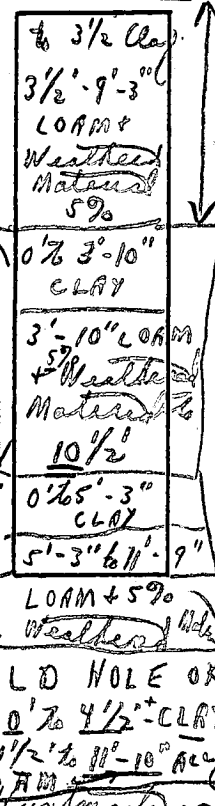 to 3 1/2 Clay.
3 1/2' - 9' - 3"
LOAM +
Weathered
Material
5%
0' to 3' - 10"
CLAY
3' - 10" LOAM
+ 5% Weathered
Material to
10 1/2'
0' to 5' - 3"
CLAY
5' - 3" to 11' - 9"
LOAM + 5%
Weathered
LD HOLE OR
0' to 4 1/2' CLAY
1/2' to 11' - 10"